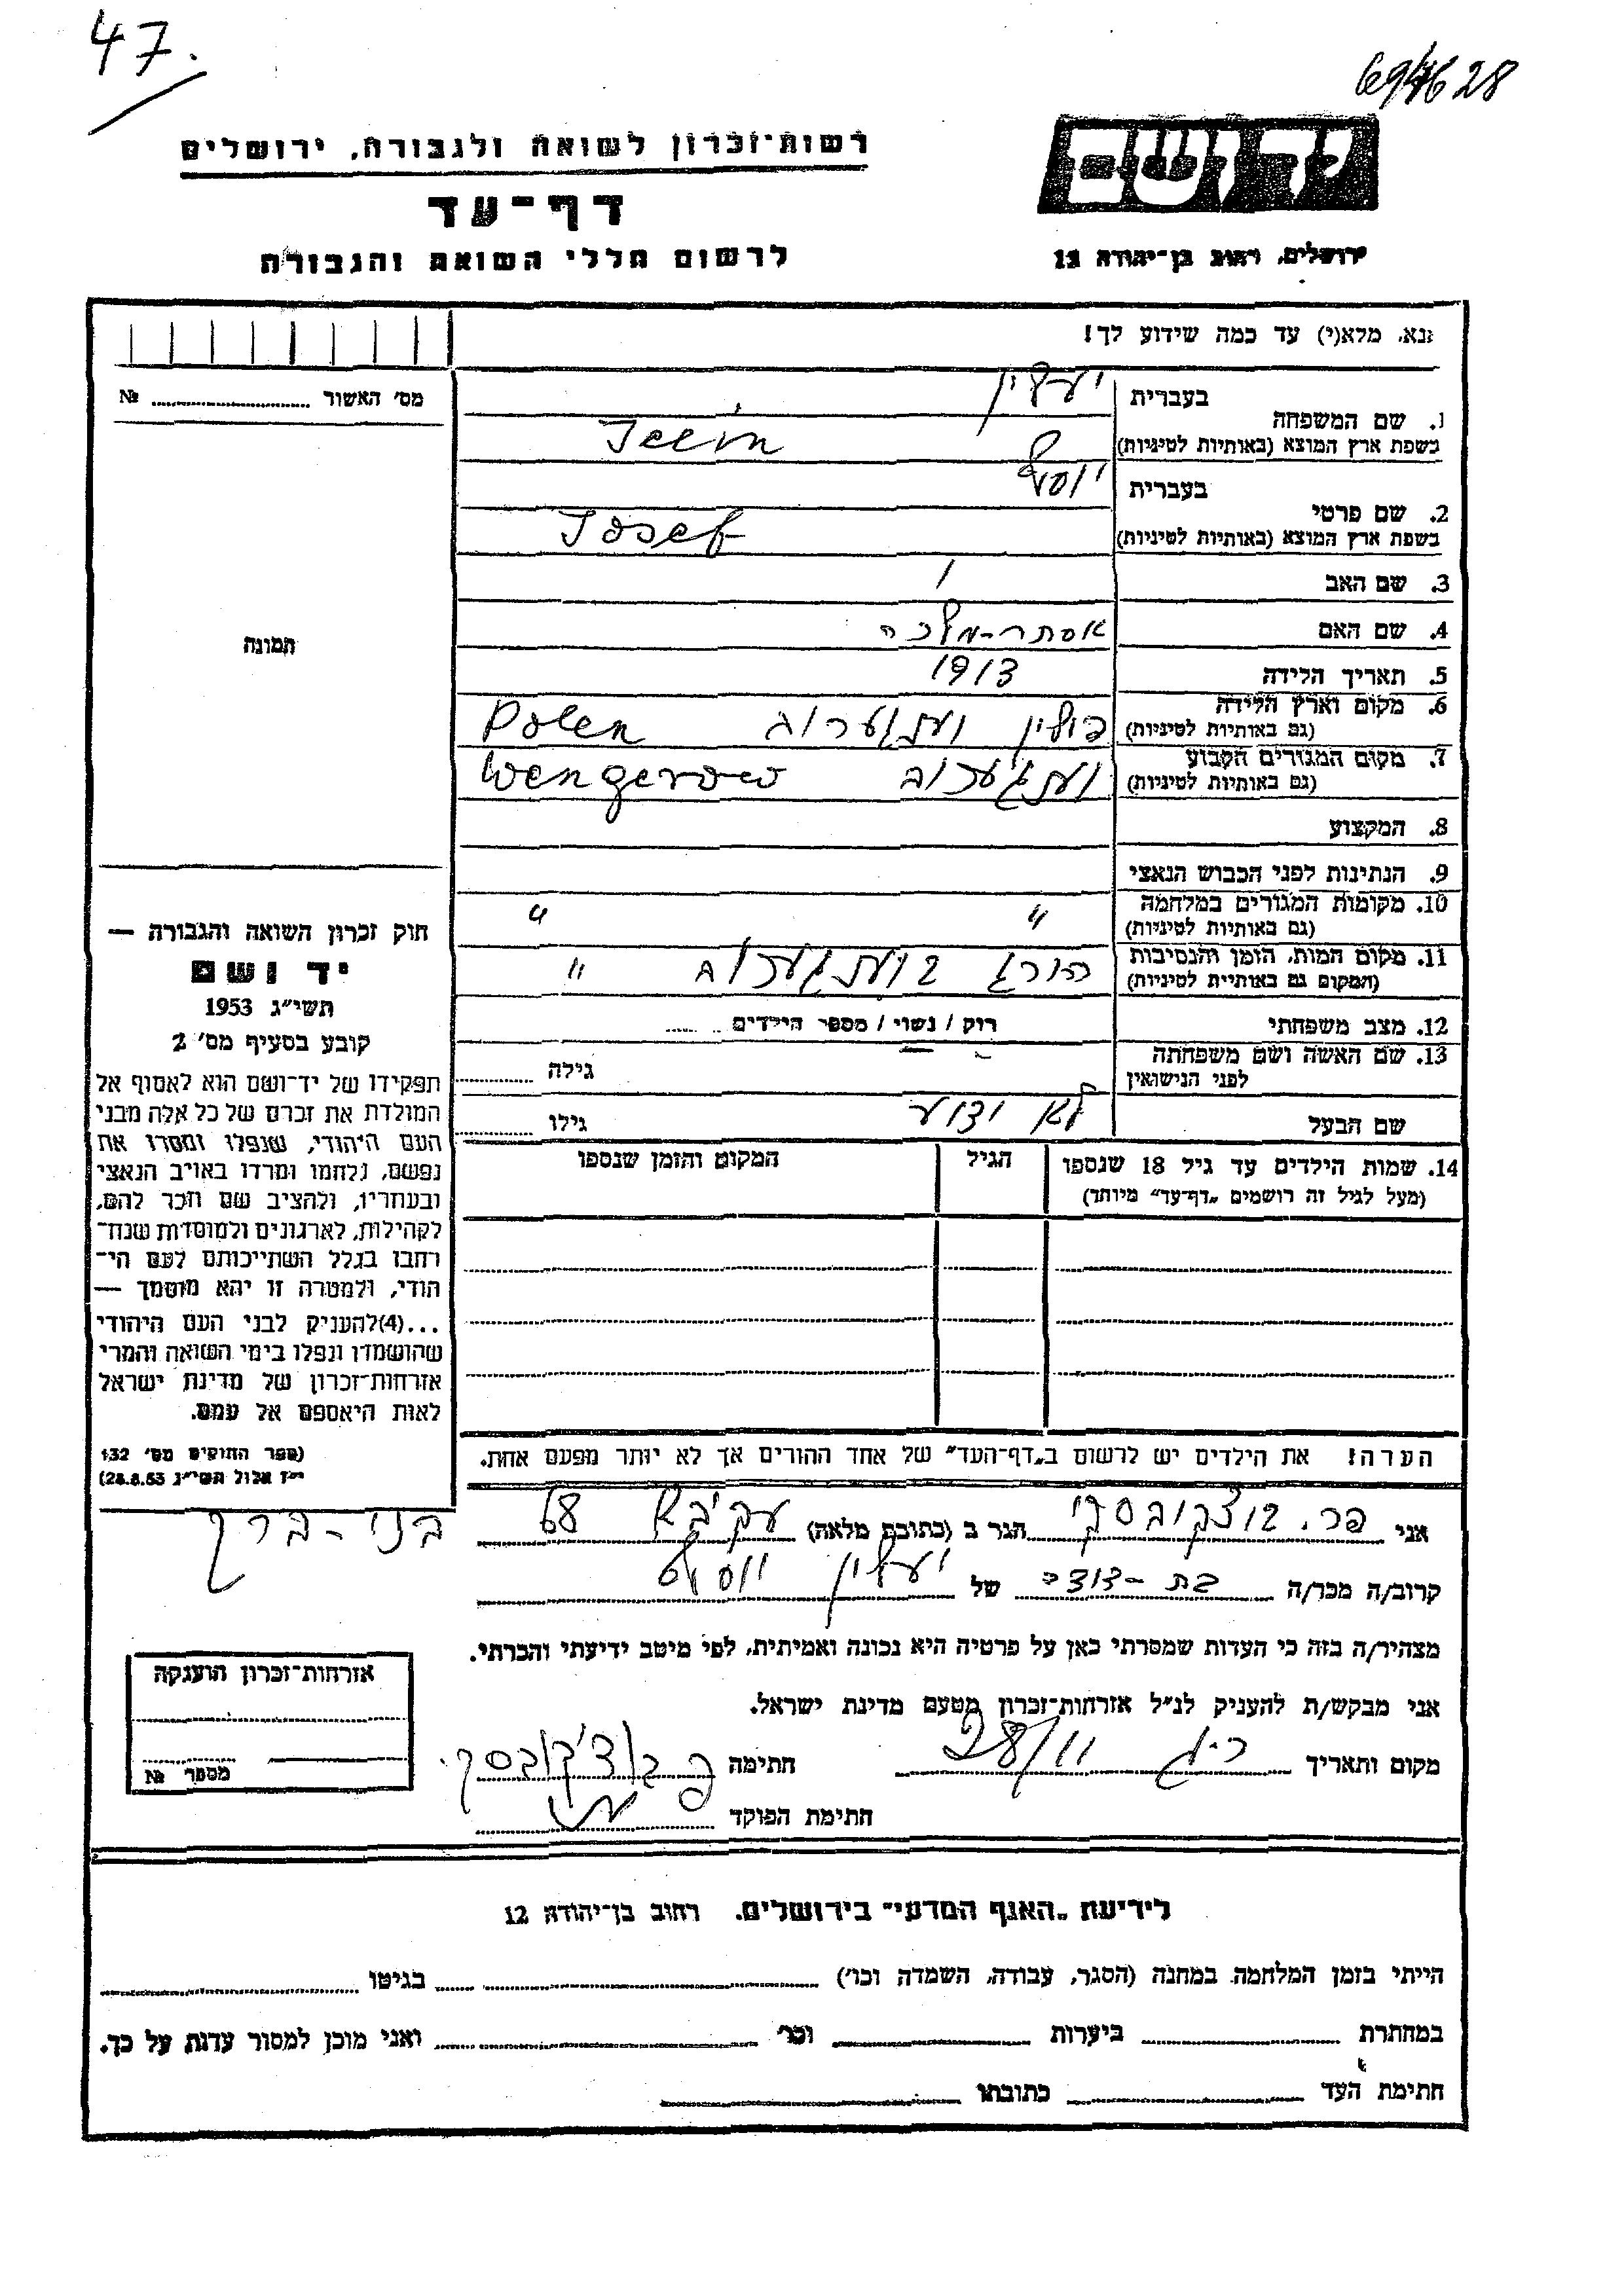 47.
69/46 28
רשות־זכרון לשואה ולגבורה, ירושלים
דף־עד
לרשום חללי השואה והגבורה
יד ושם
ירושלים, רחוב בן־יהודה 12
נא, מלא(י) עד כמה שידוע לך!
מס' האשור № ........
1. שם המשפחה
בעברית יעלין
בשפת ארץ המוצא (באותיות לטיניות)
2. שם פרטי
בעברית יוסף
בשפת ארץ המוצא (באותיות לטיניות) Josef
3. שם האב /
4. שם האם אסתר-מלכה
5. תאריך הלידה 1913
6. מקום וארץ הלידה
(גם באותיות לטיניות) פולין ונגרוב Polen
7. מקום המגורים הקבוע
(גם באותיות לטיניות) Wengerow
8. המקצוע
9. הנתינות לפני הכבוש הנאצי
10. מקומות המגורים במלחמה
(גם באותיות לטיניות) " "
11. מקום המות, הזמן והנסיבות
(המקום גם באותיות לטיניות) הורג "
12. מצב משפחתי רווק / נשוי / מספר הילדים ........
13. שם האשה ושם משפחתה
לפני הנישואין גילה ........
שם הבעל לא ידוע גילו ........
14. שמות הילדים עד גיל 18 שנספו
(מעל לגיל זה רושמים „דף־עד" מיוחד)
הגיל
המקום והזמן שנספו
הערה! את הילדים יש לרשום ב„דף־העד" של אחד ההורים אך לא יותר מפעם אחת.
תמונה
חוק זכרון השואה והגבורה —
יד ושם
תשי"ג 1953
קובע בסעיף מס' 2
תפקידו של יד־ושם הוא לאסוף אל
המולדת את זכרם של כל אלה מבני
העם היהודי, שנפלו ומסרו את
נפשם, נלחמו ומרדו באויב הנאצי
ובעוזריו, ולהציב שם וזכר להם,
לקהילות, לארגונים ולמוסדות שנח־
רבו בגלל השתייכותם לעם הי־
הודי, ולמטרה זו יהא מוסמך —
...(4)להעניק לבני העם היהודי
שהושמדו ונפלו בימי השואה והמרי
אזרחות־זכרון של מדינת ישראל
לאות היאספם אל עמם.
(ספר החוקים מס' 132
י"ז אלול תשי"ג 28.8.53)
אני פר. בוצקובסקי הגר ב (כתובת מלאה) עקיבא 68 בני-ברק
קרוב/ה מכר/ה בת-דודה של יעלין יוסף
מצהיר/ה בזה כי העדות שמסרתי כאן על פרטיה היא נכונה ואמיתית, לפי מיטב ידיעתי והכרתי.
אני מבקש/ת להעניק לנ"ל אזרחות־זכרון מטעם מדינת ישראל.
מקום ותאריך ר.ג 28/11 חתימה
חתימת הפוקד
אזרחות־זכרון הוענקה
מספר №
לידיעת „האגף המדעי" בירושלים. רחוב בן־יהודה 12
הייתי בזמן המלחמה במחנה (הסגר, עבודה, השמדה וכו') ........ בגיטו ........
במחתרת ........ ביערות ........ וכו' ........ ואני מוכן למסור עדות על כך.
חתימת העד ........ כתובתו ........